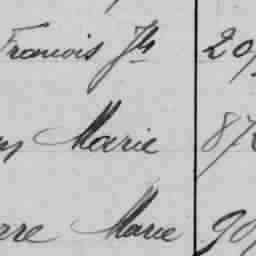 Francois Jh 20
Marie 87
Marie 90